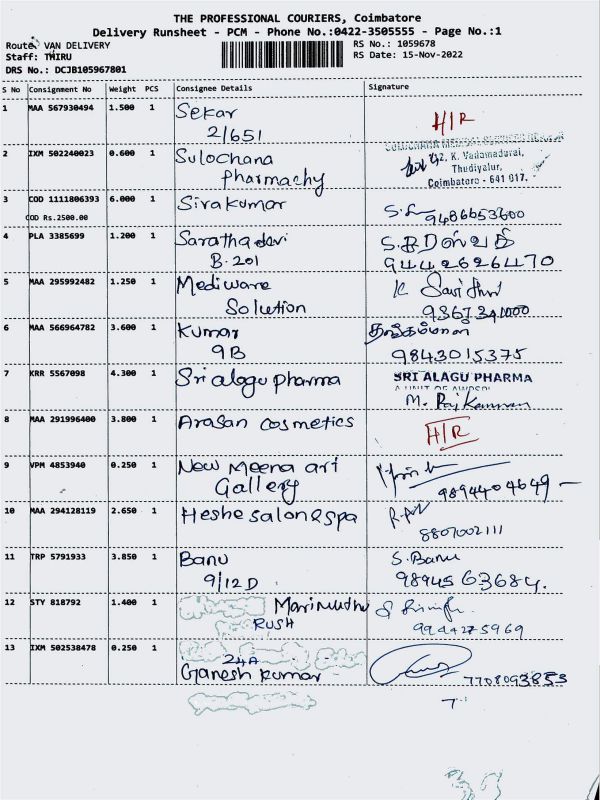 THE PROFESSIONAL COURIERS, Coimbatore
Delivery Runsheet - PCM - Phone No.:0422-3505555 - Page No.:1
Route: VAN DELIVERY
RS No.: 1059678
Staff: THIRU
RS Date: 15-Nov-2022
DRS No.: DCJB105967801
S No Consignment No Weight PCS Consignee Details Signature
1 MAA 567930494 1.500 1 Sekar
2/651
H/R
2 IXM 502240023 0.600 1 Sulochana
Pharmachy
K. Vadamadurai,
Thudiyalur,
Coimbatore - 641 017.
3 COD 1111806393 6.000 1 Sivakumar
COD Rs.2500.00
9486653600
4 PLA 3385699 1.200 1 Sarathadevi
B-201
9442626470
5 MAA 295992482 1.250 1 Mediware
Solution
K Savithri
6 MAA 566964782 3.600 1 Kumar
9B
9843015375
7 KRR 5567098 4.300 1 Sri alagu pharma
SRI ALAGU PHARMA
M. Raj Kannan
8 MAA 291996400 3.800 1 Arasan cosmetics
H/R
9 VPM 4853940 0.250 1 New Meena art
Gallery
9894404649
10 MAA 294128119 2.650 1 Heshe salon & spa
8807002111
11 TRP 5791933 3.850 1 Banu
9/12 D
S. Banu
9894563684.
12 STY 818792 1.400 1 Marimuthu
RUSH
9944275969
13 IXM 502538478 0.250 1 24A
Ganesh kumar
7708093853